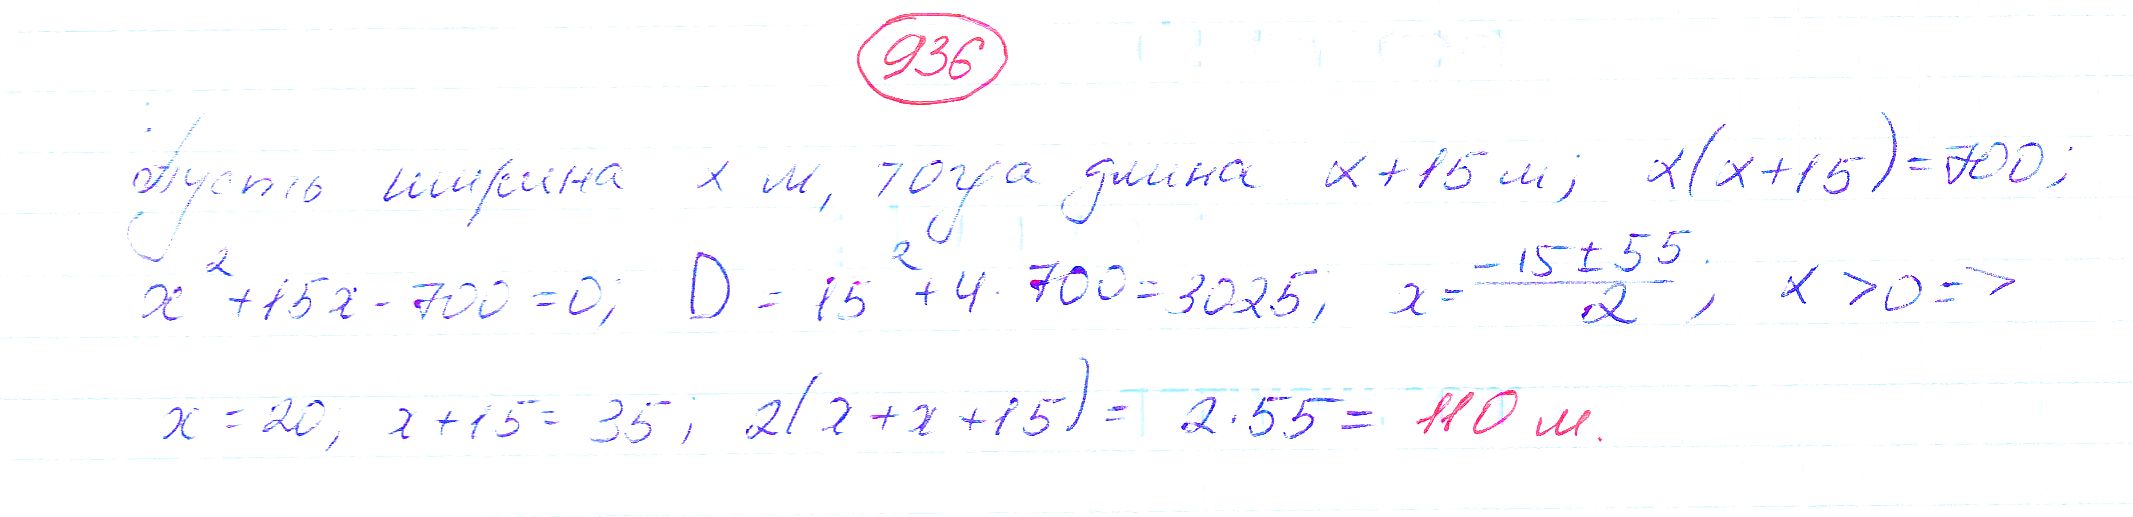 936
Пусть ширина x м, тогда длина x+15 м; x(x+15)=700;
x²+15x-700=0; D=15²+4·700=3025; x=(-15±55)/2; x>0=>
x=20; x+15=35; 2(x+x+15)=2·55=110 м.